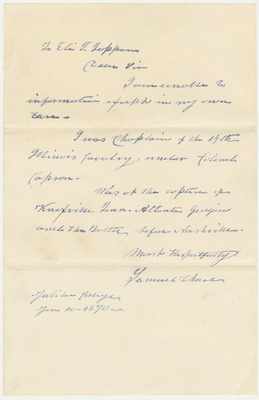 To Eli T. Toppens
Dear Sir
I am unable to
information except in my own
case -
I was Chaplain of the 14th
Illinois Cavalry, under Colonel
Capron.
Was at the capture of
Knoxville Tenn. Atlanta Georgia
and the Battle before Nashville.
Most Respectfully
Samuel Chase
Jubilee College
Jan 10 - 1890 -